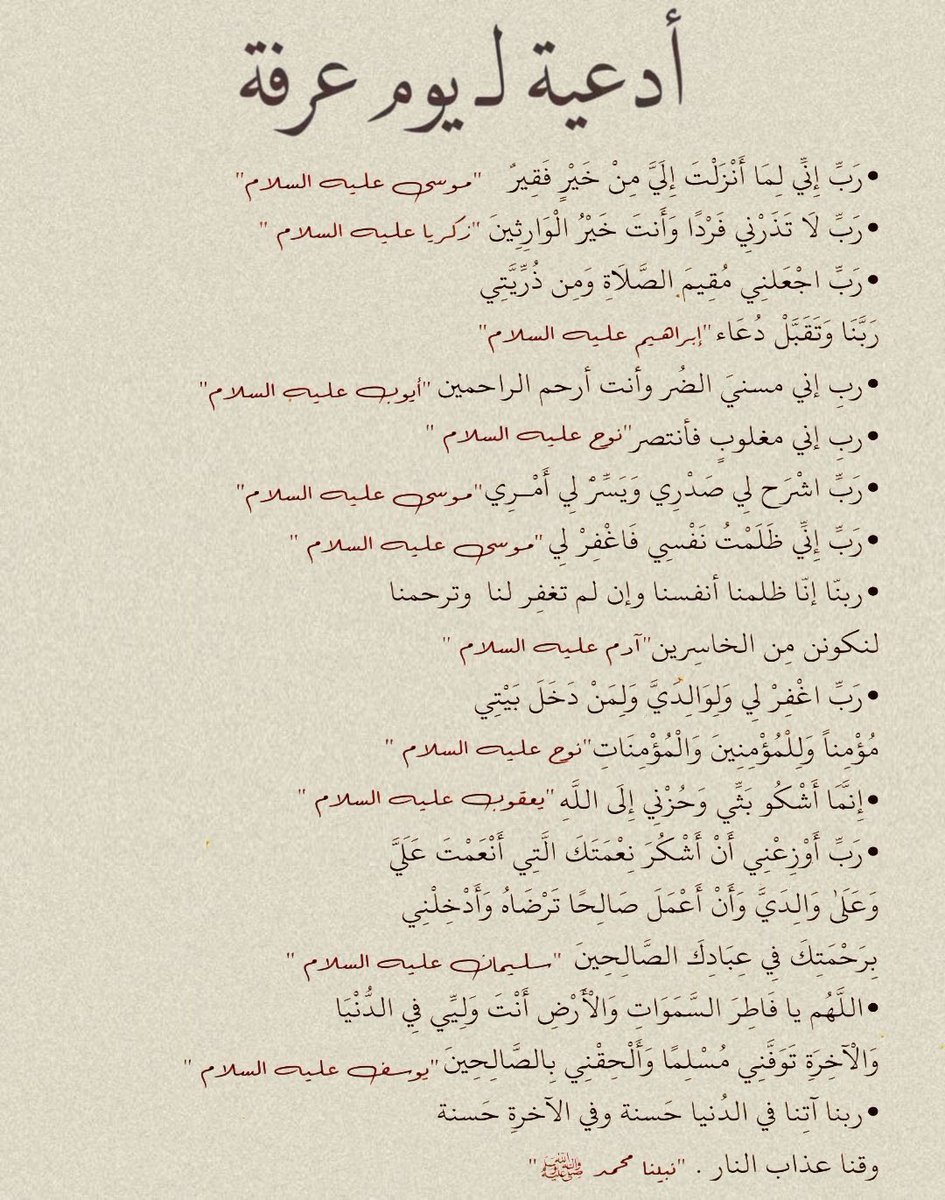 أدعية لـ يوم عرفة
•رَبِّ إِنِّي لِمَا أَنْزَلْتَ إِلَيَّ مِنْ خَيْرٍ فَقِيرٌ "موسى عليه السلام"
•رَبِّ لَا تَذَرْنِي فَرْدًا وَأَنتَ خَيْرُ الْوَارِثِينَ "زكريا عليه السلام "
•رَبِّ اجْعَلنِي مُقِيمَ الصَّلَاةِ وَمِن ذُرِّيَّتِي
رَبَّنَا وَتَقَبَّلْ دُعَاء "إبراهيم عليه السلام"
•ربِ إني مسنيَ الضُر وأنت أرحم الراحمين "أيوب عليه السلام"
•ربِ إني مغلوبٍ فأنتصر"نوح عليه السلام "
•رَبِّ اشْرَح لِي صَدْرِي وَيَسِّرْ لِي أَمْــرِي"موسى عليه السلام"
•رَبِّ إِنِّي ظَلَمْتُ نَفْسِي فَاغْفِرْ لِي "موسى عليه السلام "
•ربنّا إنّا ظلمنا أنفسنا وإن لم تغفِر لنا وترحمنا
لنكونن مِن الخاسِرين"آدم عليه السلام "
•رَبِّ اغْفِرْ لِي وَلِوَالِدَيَّ وَلِمَنْ دَخَلَ بَيْتِي
مُؤْمِناً وَلِلْمُؤْمِنِينَ وَالْمُؤْمِنَاتِ"نوح عليه السلام "
•إِنَّمَا أَشْكُو بَثِّي وَحُزْنِي إِلَى اللَّهِ "يعقوب عليه السلام "
•رَبِّ أَوْزِعْنِي أَنْ أَشْكُرَ نِعْمَتَكَ الَّتِي أَنْعَمْتَ عَلَيَّ
وَعَلَىٰ وَالِدَيَّ وَأَنْ أَعْمَلَ صَالِحًا تَرْضَاهُ وَأَدْخِلْنِي
بِرَحْمَتِكَ فِي عِبَادِكَ الصَّالِحِينَ "سليمان عليه السلام "
•اللَّهُم يا فَاطِرَ السَّمَوَاتِ وَالْأَرْضِ أَنْتَ وَلِيِّي فِي الدُّنْيَا
وَالْآخِرَةِ تَوَفَّنِي مُسْلِمًا وَأَلْحِقْنِي بِالصَّالِحِينَ "يوسف عليه السلام "
•ربنا آتِنا في الدُنيا حَسنة وفي الآخرةِ حَسنة
وقنا عذاب النار . "نبينا محمد ﷺ"